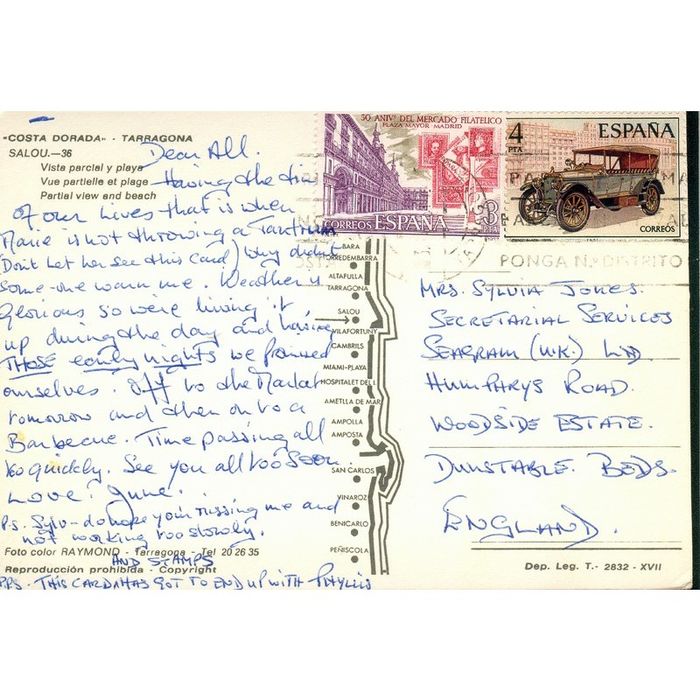 «COSTA DORADA» - TARRAGONA
SALOU.—36
Vista parcial y playa
Vue partielle et plage
Partial view and beach
Dear All.
Having the time
of our lives that is when
Marie is not throwing a Tantrum
(Don't let her see this Card) Why didn't
some-one warn me. Weather is
glorious so were living it
up during the day and having
THOSE early nights we promised
ourselves. Off to the Market
tomorrow and then on to a
Barbecue. Time passing all
too quickly. See you all too soon.
Love. June.
P.S. Sylv - do hope your missing me and
not working too slowly.
Foto color RAYMOND - Tarragona - Tel 20 26 35
AND STAMPS
Reproducción prohibida - Copyright
PPS. THIS CARD HAS GOT TO END UP WITH PHYLLIS
50 ANIV. DEL MERCADO FILATELICO
PLAZA MAYOR MADRID
CORREOS ESPAÑA 3 PTS
4
PTA
ESPAÑA
CORREOS
PONGA N.º DISTRITO
BARA
TORREDEMBARRA
ALTAFULLA
TARRAGONA
SALOU
VILAFORTUNY
CAMBRILS
MIAMI-PLAYA
HOSPITALET DEL I.
AMETLLA DE MAR
AMPOLLA
AMPOSTA
SAN CARLOS
VINAROZ
BENICARLO
PEÑISCOLA
MRS. SYLVIA JONES.
SECRETARIAL SERVICES
SEAGRAM (U.K.) Ltd.
HUMPHRYS ROAD.
WOODSIDE ESTATE.
DUNSTABLE. BEDS.
ENGLAND.
Dep. Leg. T.- 2832 - XVII